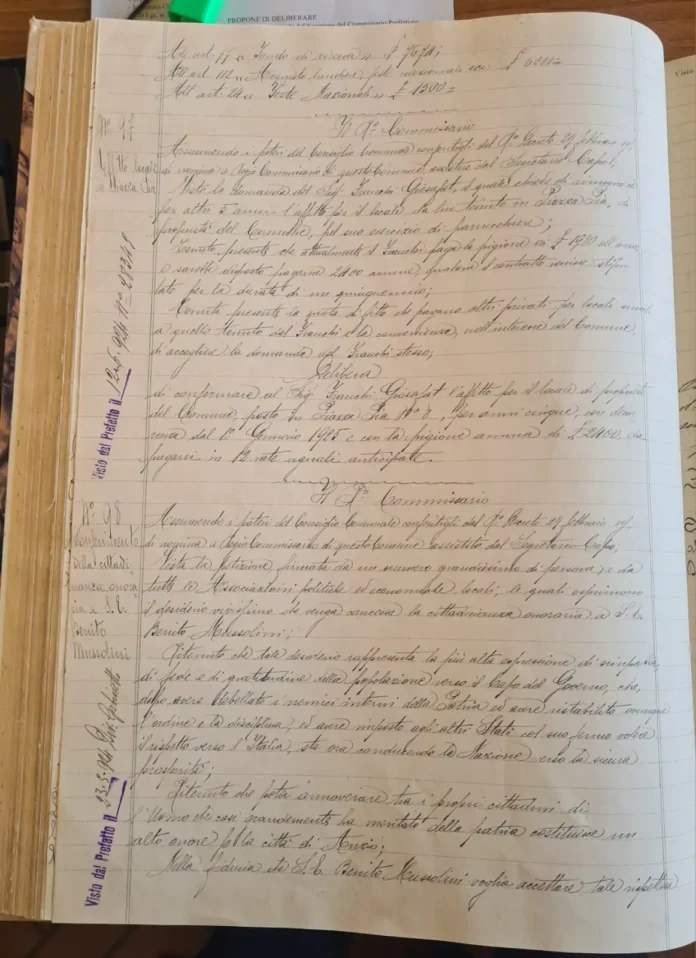 PROPONE DI DELIBERARE
All'art. 17 " Fondo di riserva " £ 7671;
All'art. 112 " Acquisto bandiere, feste nazionali ecc. £ 6000 =
All'art. 24 " Feste Nazionali " £ 1500 =
N° 97
Affitto locale
in Piazza Pia
Il R° Commissario
Assumendo i poteri del Consiglio Comunale conferitigli dal R° Decreto 29 febbraio
di nomina a Regio Commissario di questo Comune, assistito dal Segretario Capo,
Vista la domanda del Sig. Franchi Giosafat, il quale chiede di rinnovare
per altri 5 anni l'affitto per il locale da lui tenuto in Piazza Pia, di
proprietà del Comune, pel suo esercizio di parrucchiere;
Tenuto presente che attualmente il Franchi paga la pigione di £ annue
e sarebbe disposto pagarne 2400 annue, qualora il contratto venisse stipu
lato per la durata di un quinquennio;
Tenuta presente la quota di fitto che pagano altri privati per locali simili
a quello tenuto dal Franchi e la convenienza, nell'interesse del Comune
di accogliere la domanda del Franchi stesso;
Delibera
di confermare al Sig. Franchi Giosafat l'affitto per il locale di proprietà
del Comune, posto in Piazza Pia N° 8, per anni cinque, con decor
renza dal 1° Gennaio 1925 e con la pigione annua di £ 2400, da
pagarsi in 12 rate uguali anticipate.
Visto dal Prefetto il
N° 98
Conferimento
della cittadi
nanza onora
ria a S. E.
Benito
Mussolini
Il R° Commissario
Assumendo i poteri del Consiglio Comunale conferitigli dal R° Decreto 29 febbraio
di nomina a Regio Commissario di questo Comune assistito dal Segretario Capo,
Vista la petizione firmata da un numero grandissimo di persone e da
tutte le Associazioni politiche ed economiche locali, le quali esprimono
il desiderio vivissimo che venga concessa la cittadinanza onoraria a S. E.
Benito Mussolini;
Ritenuto che tale desiderio rappresenta la più alta espressione di simpatia,
di fede e di gratitudine della popolazione verso il Capo del Governo, che,
dopo avere debellato i nemici interni della Patria ed avere ristabilito ovunque
l'ordine e la disciplina, ed avere imposto agli altri Stati col suo fermo volere
il rispetto verso l'Italia, sta ora conducendo la Nazione verso la sicura
prosperità;
Ritenuto che poter annoverare tra i propri cittadini di
l'Uomo che così grandemente ha meritato della patria costituisce un
alto onore per la città di Anzio;
Nella fiducia che S. E. Benito Mussolini voglia accettare tale rispettosa
Visto dal Prefetto il